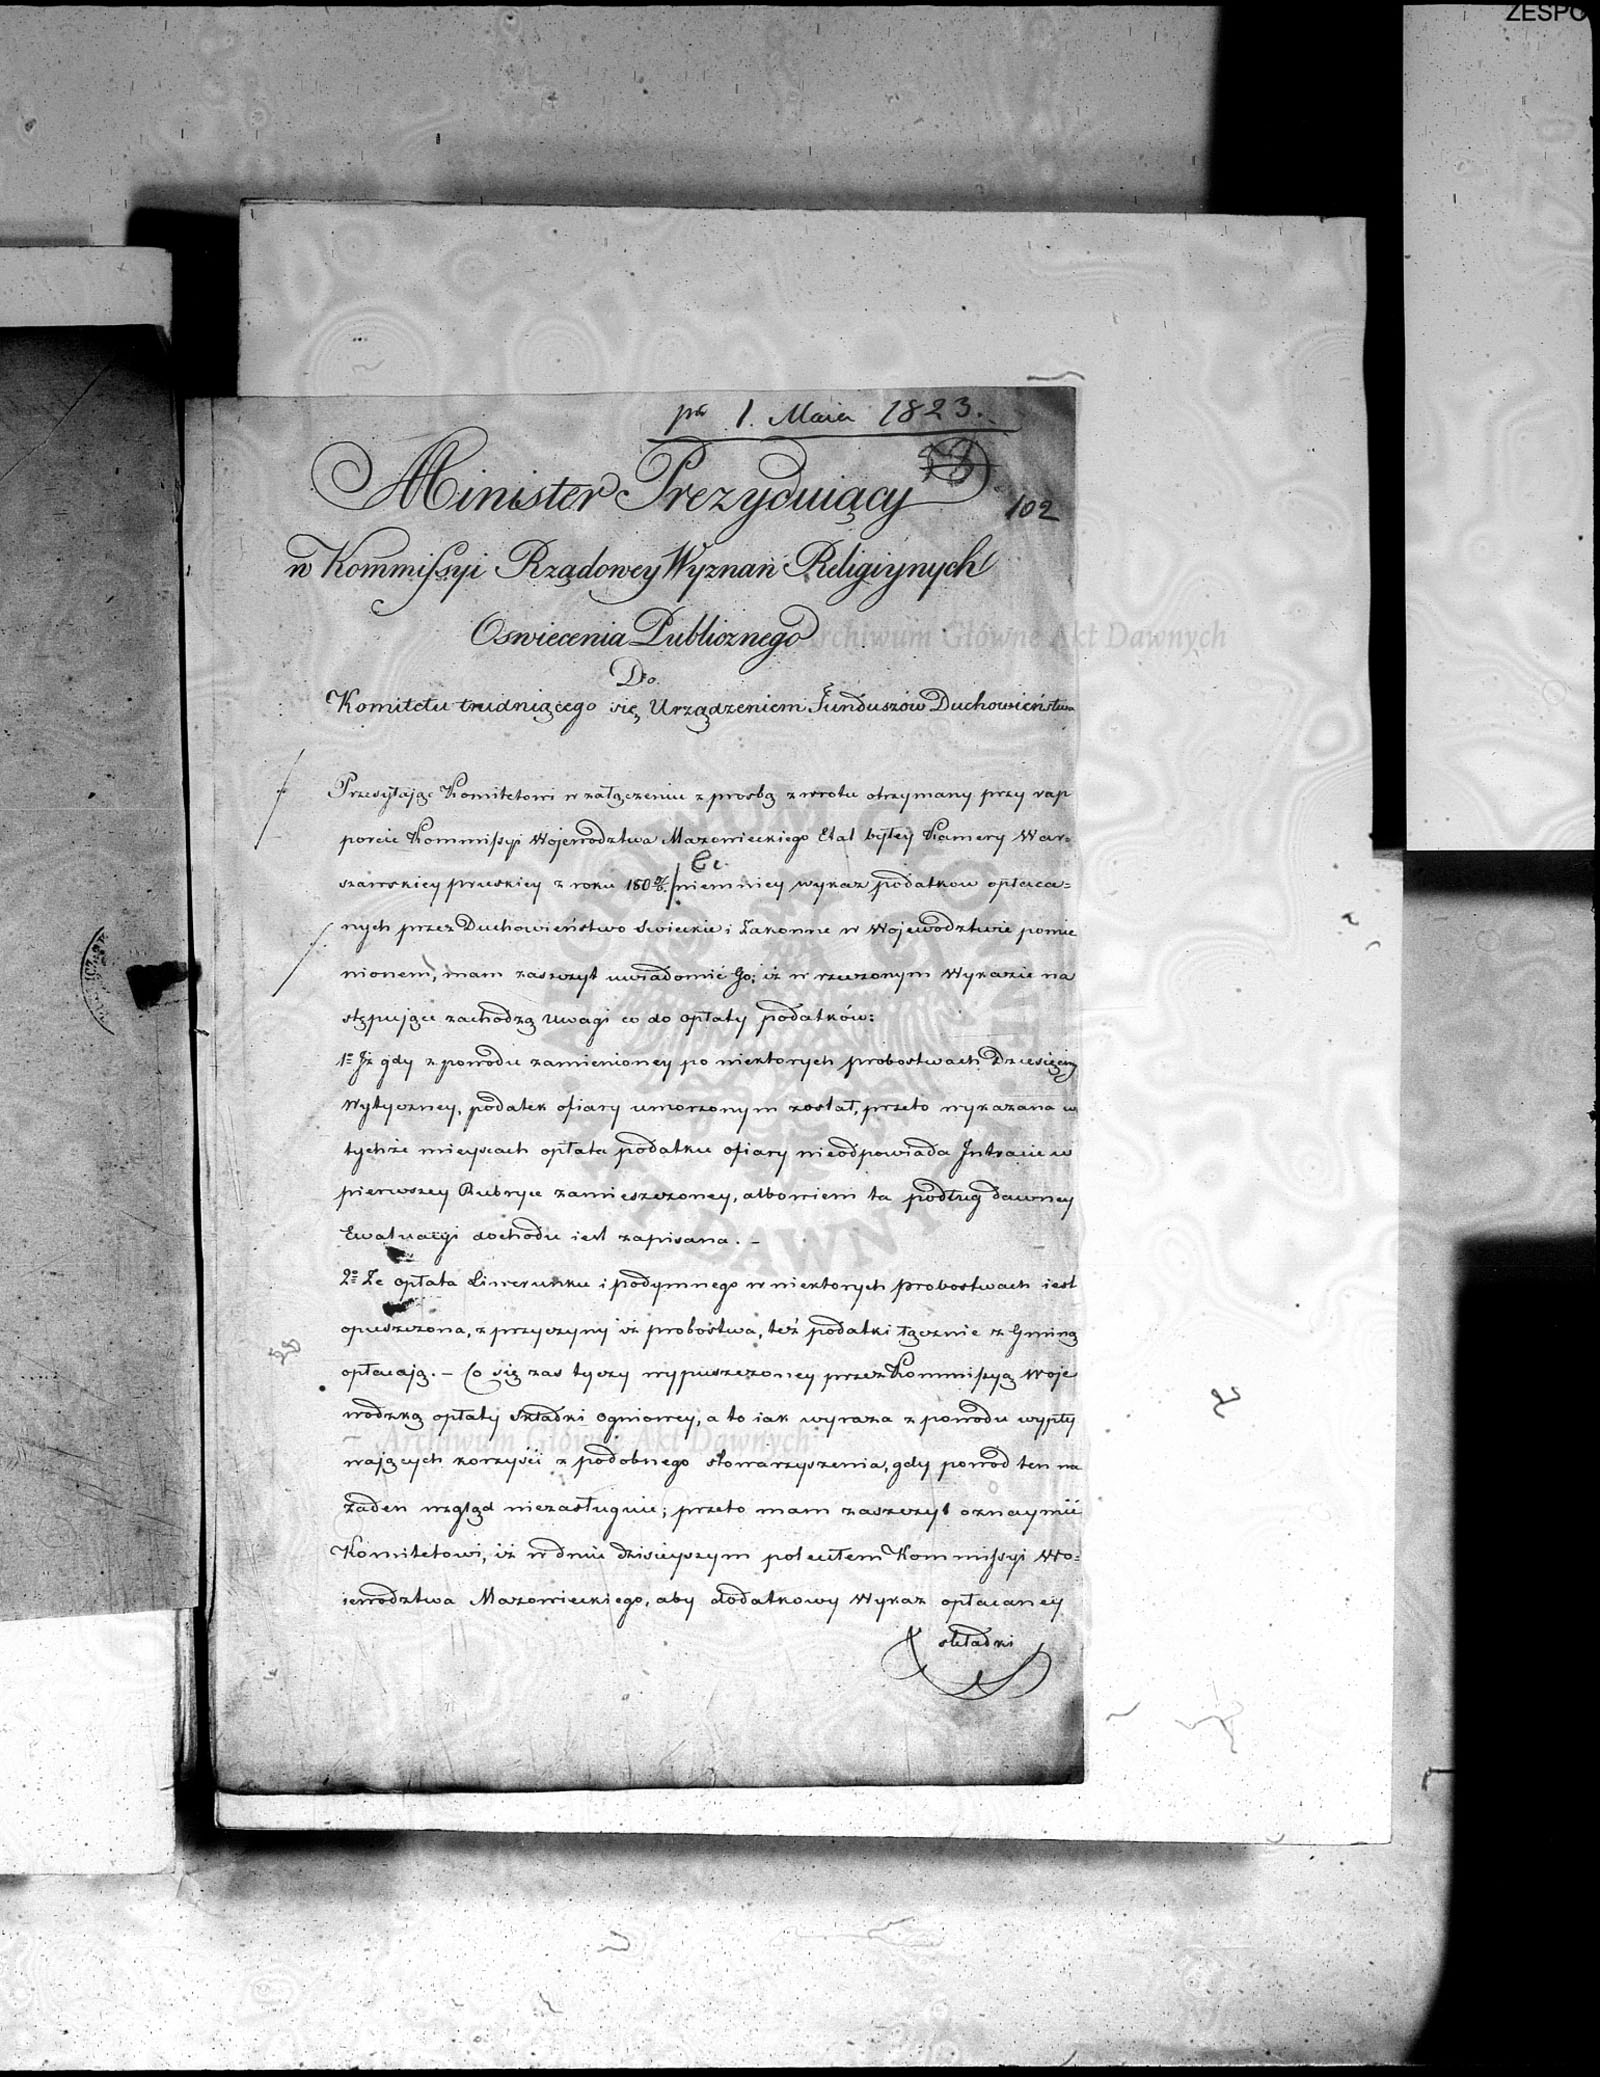 ZESPO
pn 1. Maia 1823.
102
Minister Prezyduiący
w Kommissyi Rządowey Wyznań Religiynych
Oswiecenia Publicznego
Do
Komitetu trudniącego się Urządzeniem Funduszów Duchowieństwa
Przesyłając Komitetowi w załączeniu z prosbą zwrotu otrzymany przy rap
porcie Kommissyi Województwa Mazowieckiego Etat byłey Kamery War=
szawskiey pruskiey z roku 180 niemniey wykaz podatkow opłaca=
nych przez Duchowieństwo Swieckie i Zakonne w Województwie pomie
nionem, mam zaszczyt uwiadomić Go; iż w rzeczonym Wykazie na
stępujące zachodzą Uwagi co do opłaty podatków:
1o Iż gdy z powodu zamienioney po niektorych probostwach Dziesięciny
Wytyczney, podatek ofiary umorzonym został, przeto wykazana w
tychże mieyscach opłata podatku ofiary nieodpowiada Intracie w
pierwszey Rubryce zamieszczoney, albowiem ta podług dawney
Ewaluacyi dochodu iest zapisana. –
2o Ze opłata Liwerunku i podymnego w niektorych probostwach iest
opuszczona, z przyczyny iż probostwa, też podatki łącznie z Gminą
opłacają. – Co się zas tyczy wypuszczoney przez Kommissyą Woje
wodzką opłaty składki Ogniowey, a to iak wyraża z powodu wypły
wających korzyści z podobnego stowarzyszenia, gdy powod ten na
żaden wzgląd niezasługuie; przeto mam zaszczyt oznaymić
Komitetowi, iż w dniu dzisieyszym poleciłem Kommissyi Wo=
iewodztwa Mazowieckiego, aby dodatkowy Wykaz opłacaney
składki
Archiwum Główne Akt Dawnych
Archiwum Główne Akt Dawnych